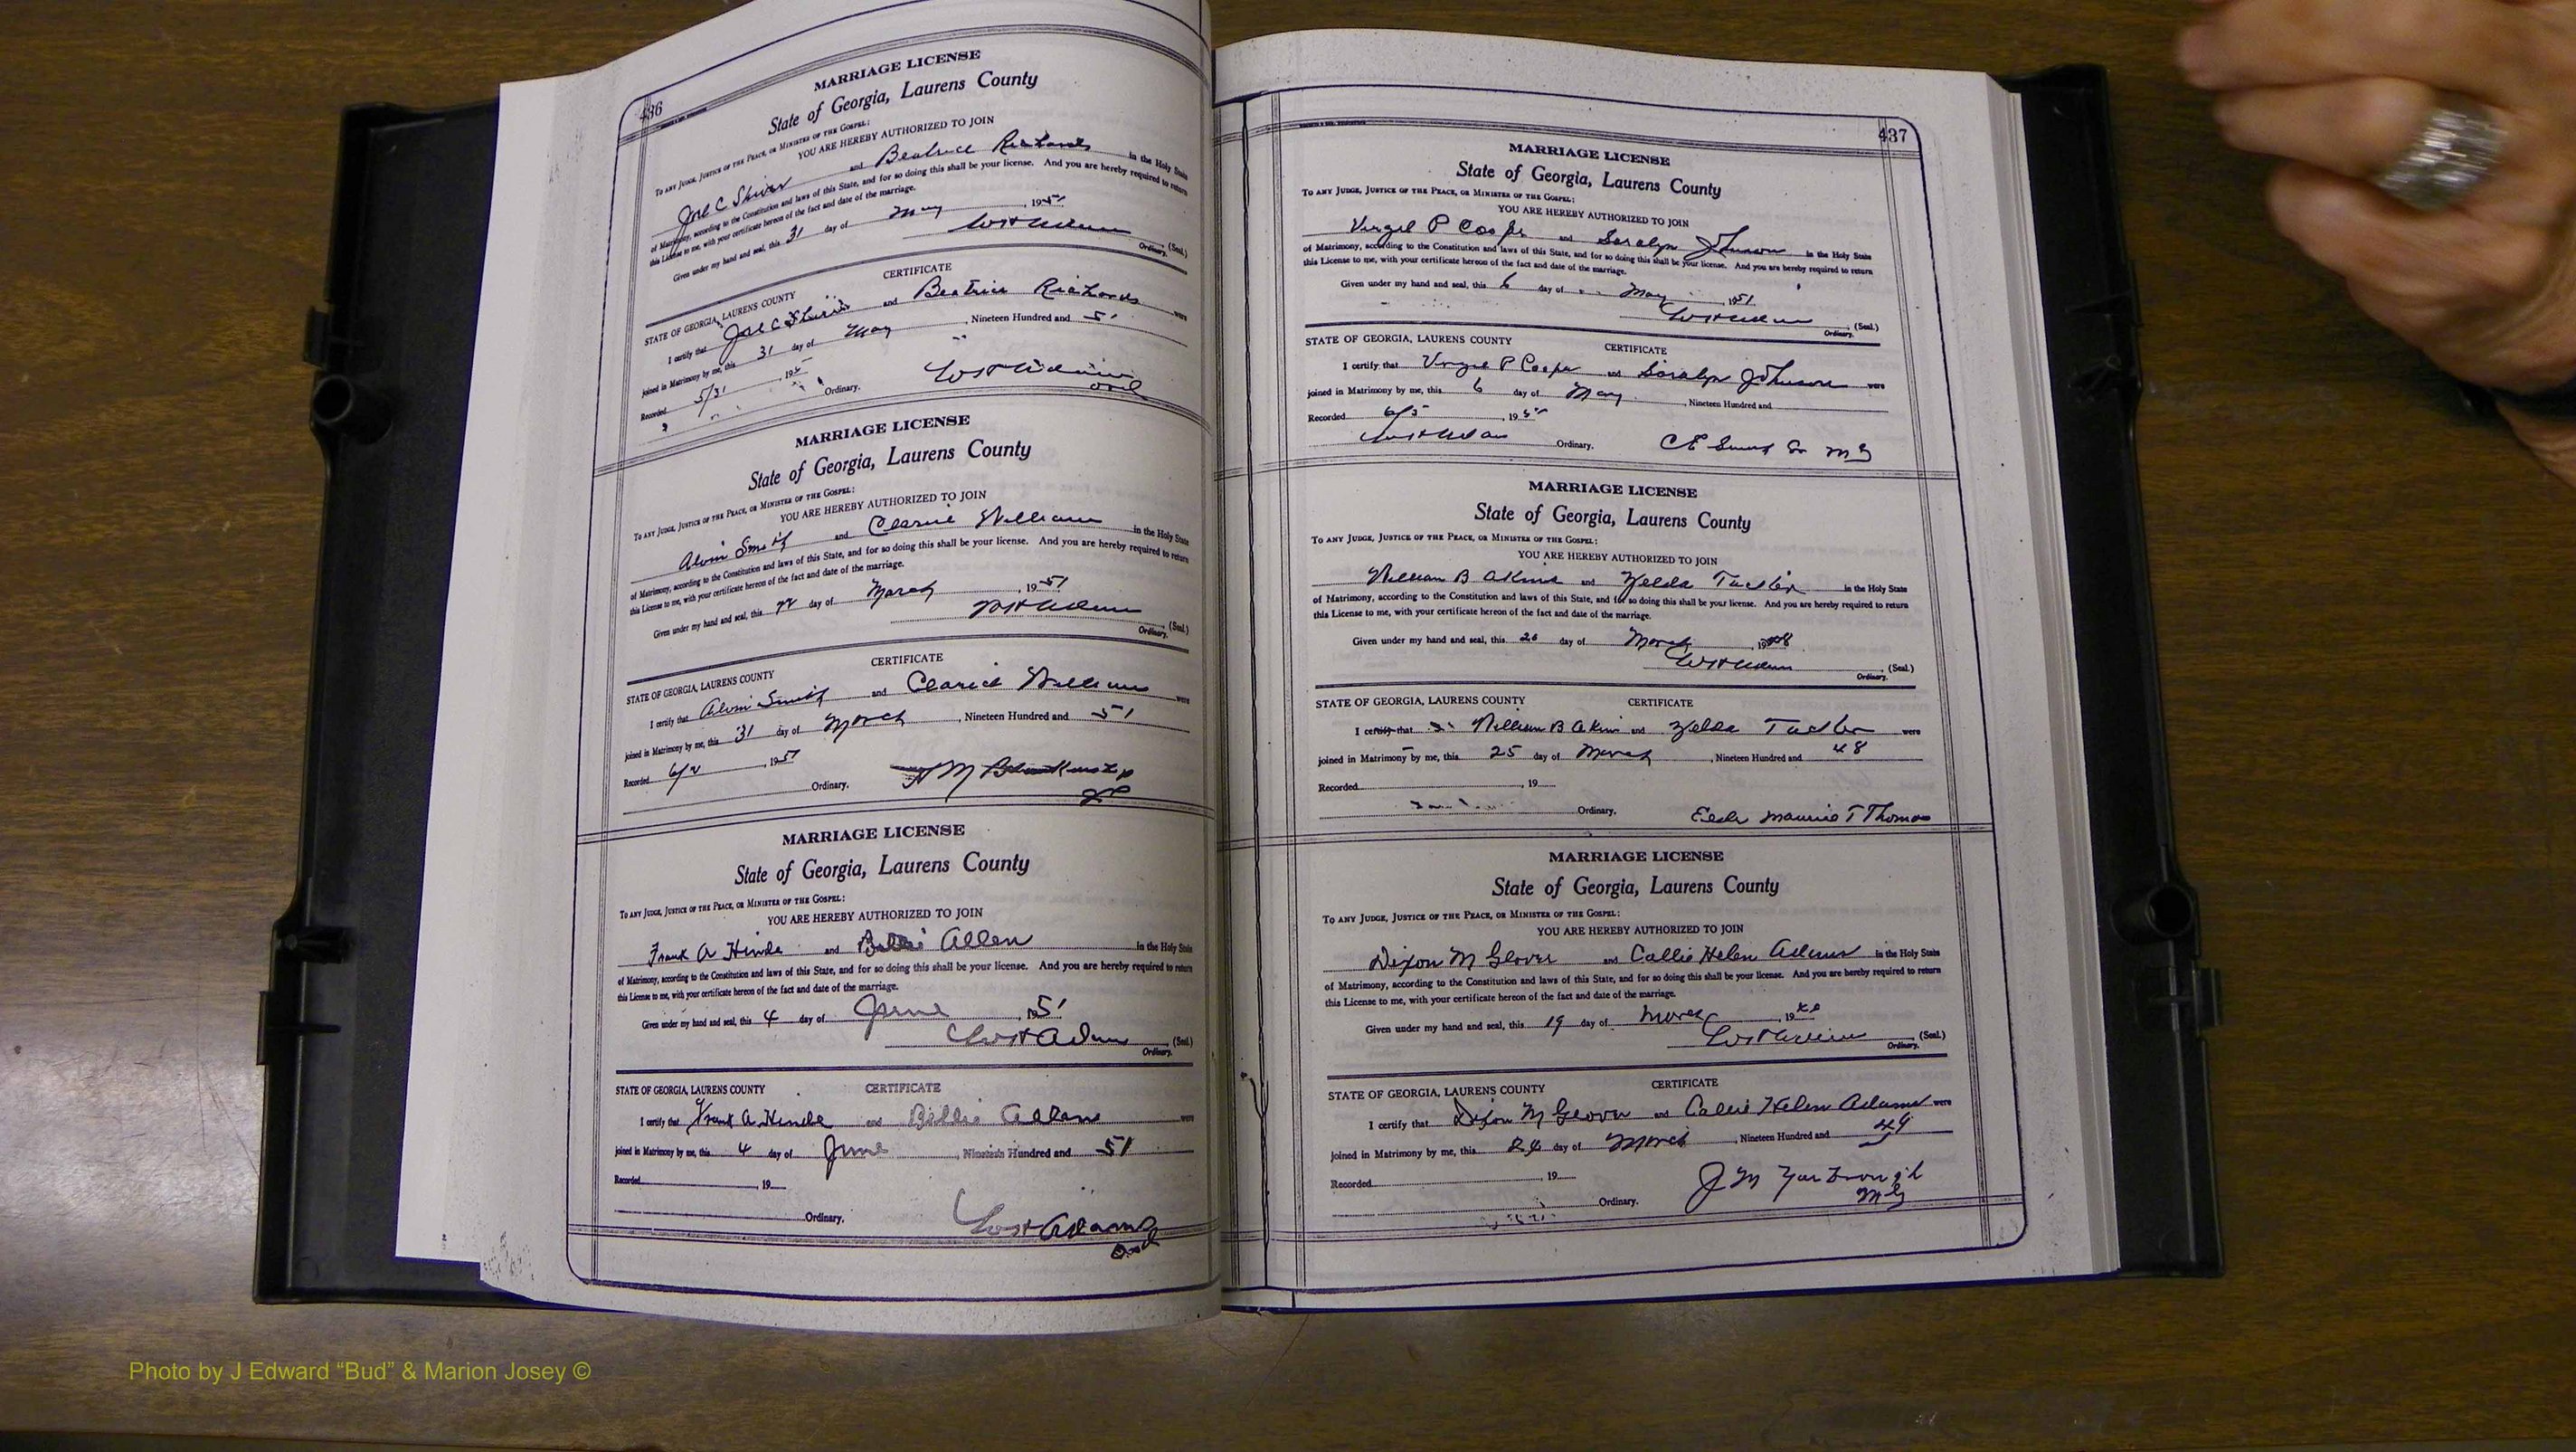 436
MARRIAGE LICENSE
State of Georgia, Laurens County
To ANY JUDGE, JUSTICE OF THE PEACE, OR MINISTER OF THE GOSPEL:
YOU ARE HEREBY AUTHORIZED TO JOIN
Joel C and Beatrice Richards in the Holy State
of Matrimony, according to the Constitution and laws of this State, and for so doing this shall be your license. And you are hereby required to return
this License to me, with your certificate hereon of the fact and date of the marriage.
Given under my hand and seal, this 31 day of May, 1951
(Seal.)
Ordinary.
CERTIFICATE
STATE OF GEORGIA, LAURENS COUNTY
I certify that Joel C and Beatrice Richards were
joined in Matrimony by me, this 31 day of May, Nineteen Hundred and 51
Recorded 5/31, 195
Ordinary.
MARRIAGE LICENSE
State of Georgia, Laurens County
To ANY JUDGE, JUSTICE OF THE PEACE, OR MINISTER OF THE GOSPEL:
YOU ARE HEREBY AUTHORIZED TO JOIN
Alvin Smith and Williams in the Holy State
of Matrimony, according to the Constitution and laws of this State, and for so doing this shall be your license. And you are hereby required to return
this License to me, with your certificate hereon of the fact and date of the marriage.
Given under my hand and seal, this day of March, 1951
(Seal.)
Ordinary.
CERTIFICATE
STATE OF GEORGIA, LAURENS COUNTY
I certify that Alvin Smith and Williams were
joined in Matrimony by me, this 31 day of March, Nineteen Hundred and 51
Recorded 6/2, 1951
Ordinary. H M Blankenship
JP
MARRIAGE LICENSE
State of Georgia, Laurens County
To ANY JUDGE, JUSTICE OF THE PEACE, OR MINISTER OF THE GOSPEL:
YOU ARE HEREBY AUTHORIZED TO JOIN
Frank A and Billie Allen in the Holy State
of Matrimony, according to the Constitution and laws of this State, and for so doing this shall be your license. And you are hereby required to return
this License to me, with your certificate hereon of the fact and date of the marriage.
Given under my hand and seal, this 4 day of June, 1951
Adams (Seal.)
Ordinary.
STATE OF GEORGIA, LAURENS COUNTY CERTIFICATE
I certify that Frank A and Billie Allen were
joined in Matrimony by me, this 4 day of June, Nineteen Hundred and 51
Recorded, 19
Ordinary. Adams
Ord
437
MARRIAGE LICENSE
State of Georgia, Laurens County
To ANY JUDGE, JUSTICE OF THE PEACE, OR MINISTER OF THE GOSPEL:
YOU ARE HEREBY AUTHORIZED TO JOIN
Virgil P Cooper and Saralyn Johnson in the Holy State
of Matrimony, according to the Constitution and laws of this State, and for so doing this shall be your license. And you are hereby required to return
this License to me, with your certificate hereon of the fact and date of the marriage.
Given under my hand and seal, this 6 day of May, 1951
(Seal.)
Ordinary.
STATE OF GEORGIA, LAURENS COUNTY CERTIFICATE
I certify that Virgil P Cooper and Saralyn Johnson were
joined in Matrimony by me, this 6 day of May, Nineteen Hundred and
Recorded 6/5, 195
Ordinary. C E MG
MARRIAGE LICENSE
State of Georgia, Laurens County
To ANY JUDGE, JUSTICE OF THE PEACE, OR MINISTER OF THE GOSPEL:
YOU ARE HEREBY AUTHORIZED TO JOIN
William B Akins and Zelda in the Holy State
of Matrimony, according to the Constitution and laws of this State, and for so doing this shall be your license. And you are hereby required to return
this License to me, with your certificate hereon of the fact and date of the marriage.
Given under my hand and seal, this 20 day of March, 1948
(Seal.)
Ordinary.
STATE OF GEORGIA, LAURENS COUNTY CERTIFICATE
I certify that William B Akins and Zelda were
joined in Matrimony by me, this 25 day of March, Nineteen Hundred and 48
Recorded, 19
Ordinary. Elder Maurice T Thomas
MARRIAGE LICENSE
State of Georgia, Laurens County
To ANY JUDGE, JUSTICE OF THE PEACE, OR MINISTER OF THE GOSPEL:
YOU ARE HEREBY AUTHORIZED TO JOIN
Dixon M Glover and Callie Helen Adams in the Holy State
of Matrimony, according to the Constitution and laws of this State, and for so doing this shall be your license. And you are hereby required to return
this License to me, with your certificate hereon of the fact and date of the marriage.
Given under my hand and seal, this 19 day of March, 19
(Seal.)
Ordinary.
STATE OF GEORGIA, LAURENS COUNTY CERTIFICATE
I certify that Dixon M Glover and Callie Helen Adams were
joined in Matrimony by me, this 24 day of March, Nineteen Hundred and 49
Recorded, 19
Ordinary. J M Yarbrough
MG
Photo by J Edward “Bud” & Marion Josey ©